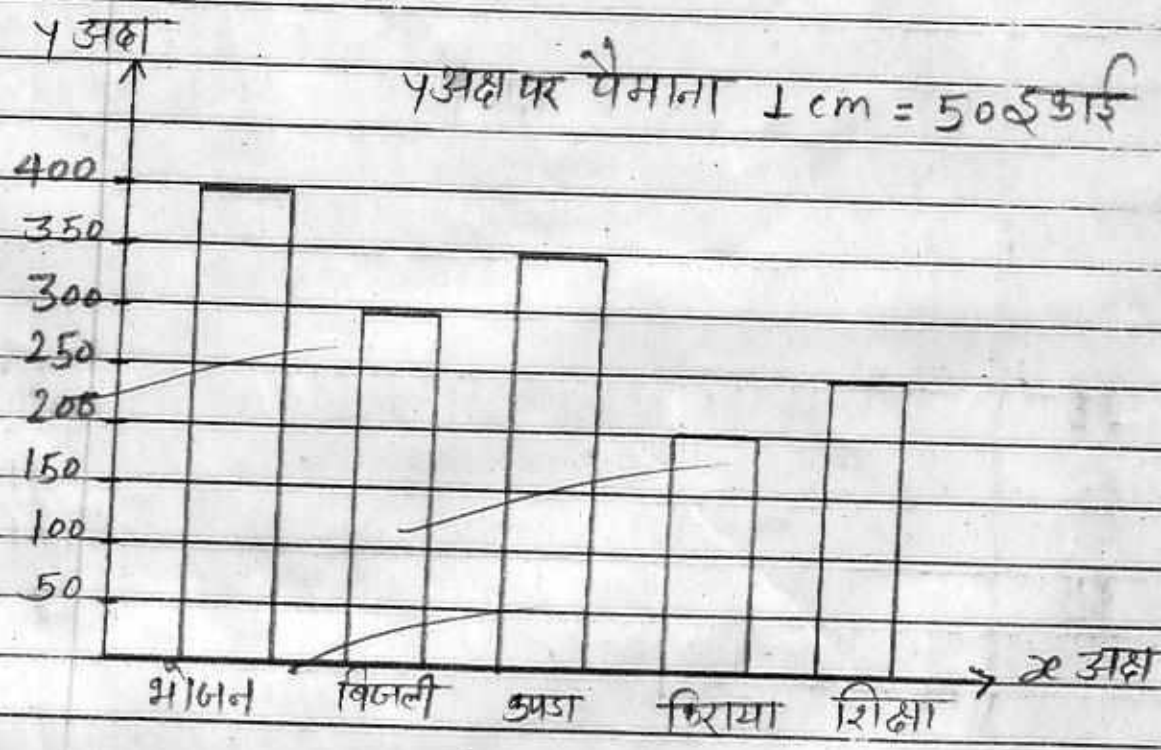 y अक्ष
y अक्ष पर पैमाना 1 cm = 50 इकाई
400
350
300
250
200
150
100
50
x अक्ष
भोजन बिजली कपडा किराया शिक्षा